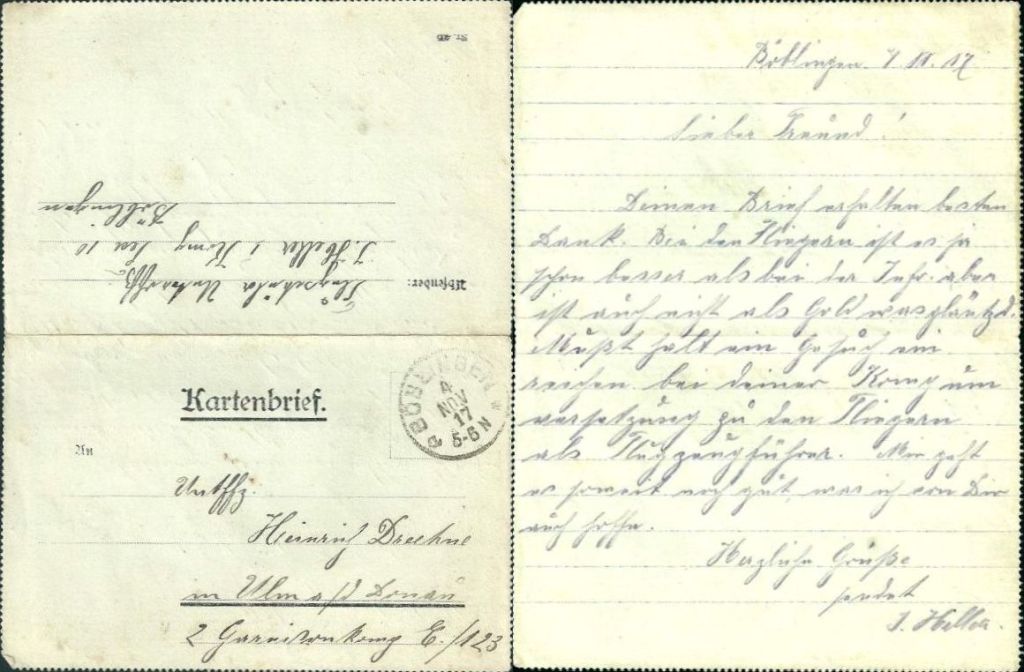 Absender:
Flugschüler Unteroffz.
J. Heller 1 Komp
Böblingen
Kartenbrief.
An
BÖBLINGEN
4
NOV
17
5-6 N
Untffz.
Heinrich Drechne
in Ulm a/d Donau
2 Garnisonkomp E./123
Böblingen 17
Lieber Freund!
Deinen Brief erhalten besten
Dank. Bei den Fliegern ist es ja
schon besser als bei der Inftr. aber
ist auch nicht als Gold was glänzt.
Mußt halt ein Gesuch ein
reichen bei deiner Komp um
versetzung zu den Fliegern
als Flugzeugführer. Mir geht
es soweit noch gut was ich von Dir
auch hoffe.
Herzliche Grüße
sendet
J. Heller.